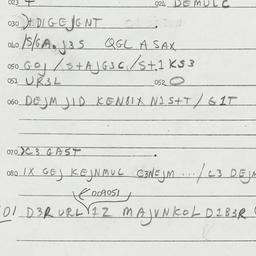 023 021 DEMULC
030 DIGEJGNT
040 /S/GA.J3S QGL A SAX
050 GOJ /S+AJG3C/S+.1 KS3
051 UR3L 052 O
060 DEJM JID KEN8IX N1S+T/G1T
070 X3 GAST.
080 IX GEJ KEJNMUC C3NEJM .../L3 DEJM
009051
D3R URL 1Z MAJVNKOL D183R